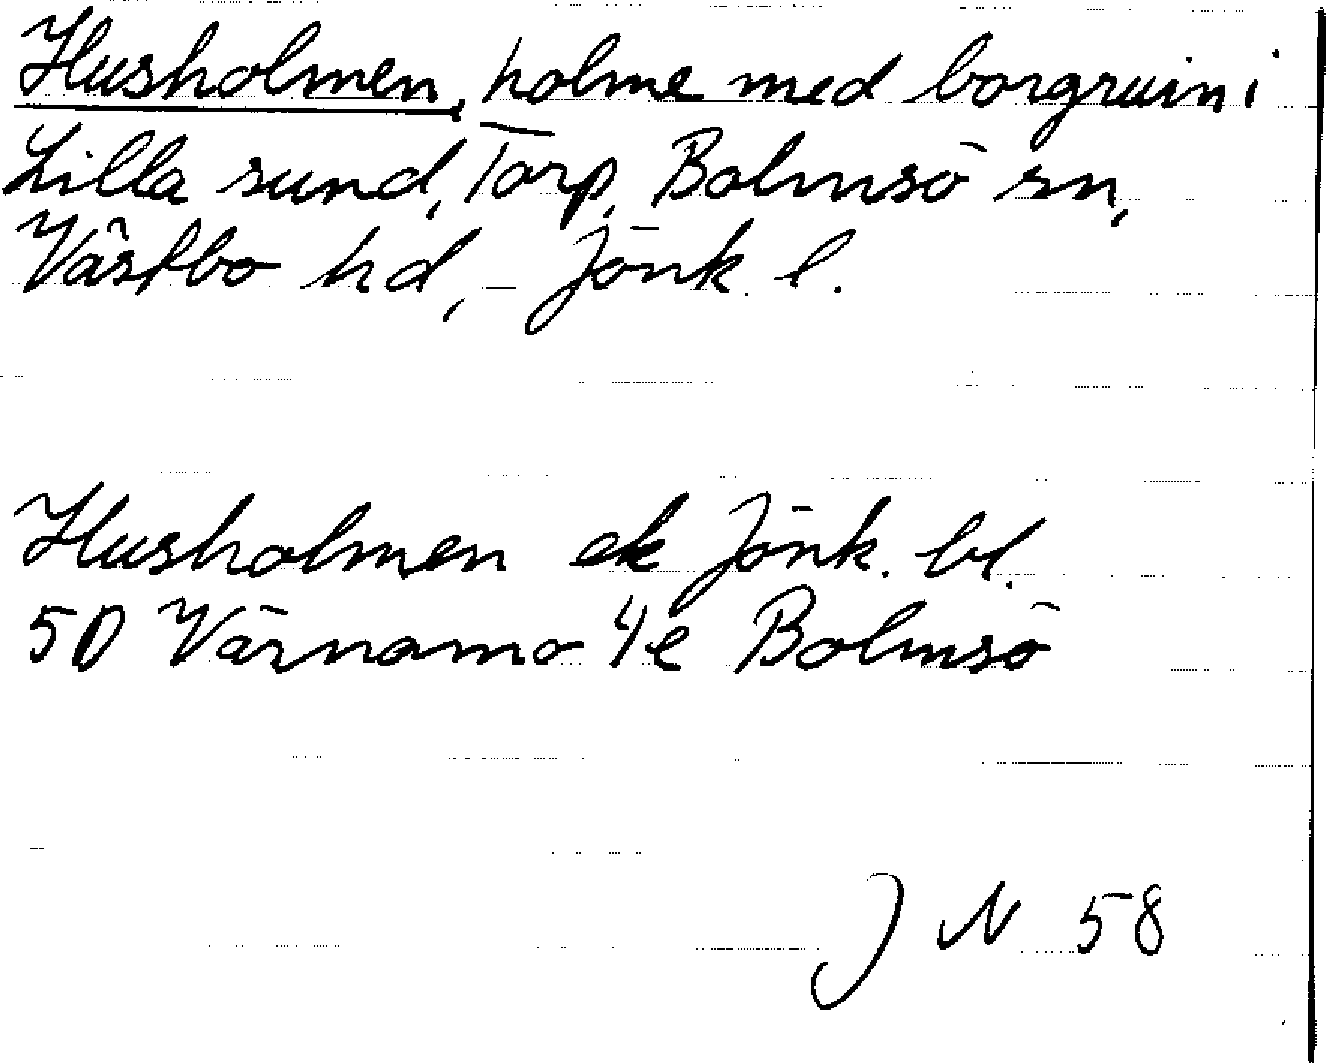 Husholmen, holme med borgruin i
Lilla sund, Torp, Bolmsö sn,
Västbo hd, Jönk. l.
Husholmen ek Jönk. bl.
5D Värnamo 4e Bolmsö
J N 58